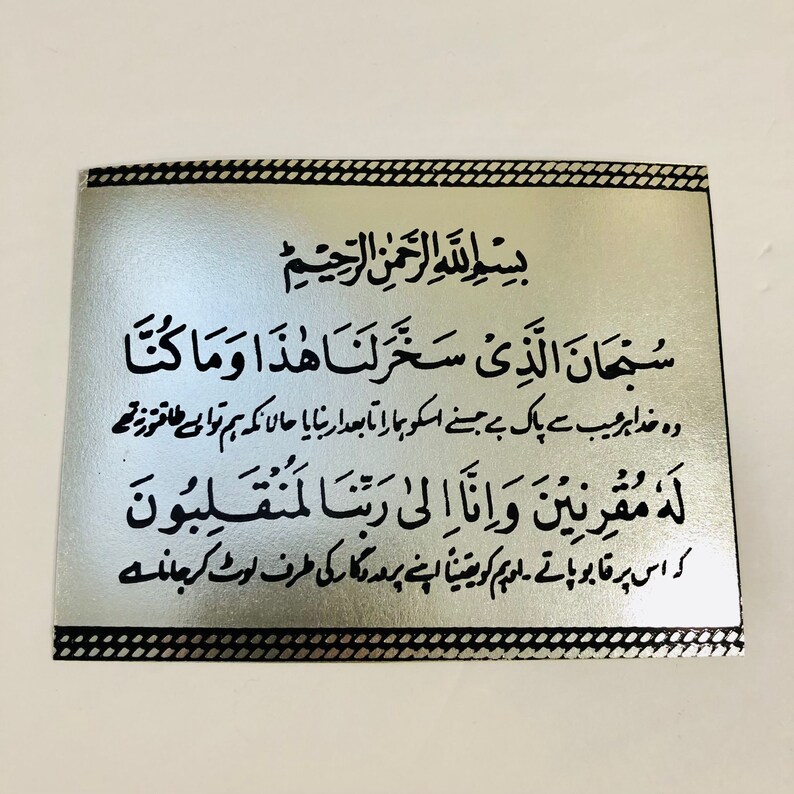 بِسْمِ اللّٰهِ الرَّحْمٰنِ الرَّحِيْمِ
سُبْحَانَ الَّذِیْ سَخَّرَلَنَا هٰذَا وَمَا كُنَّا
وہ خدا ہر عیب سے پاک ہے جسنے اسکو ہمارا تابعدار بنایا حالانکہ ہم تو ایسے طاقتور نہ تھے
لَهٗ مُقْرِنِيْنَ وَاِنَّا اِلٰی رَبِّنَا لَمُنْقَلِبُوْنَ
کہ اس پر قابو پاتے ۔ اور ہم کو یقیناً اپنے پروردگار کی طرف لوٹ کر جانا ہے